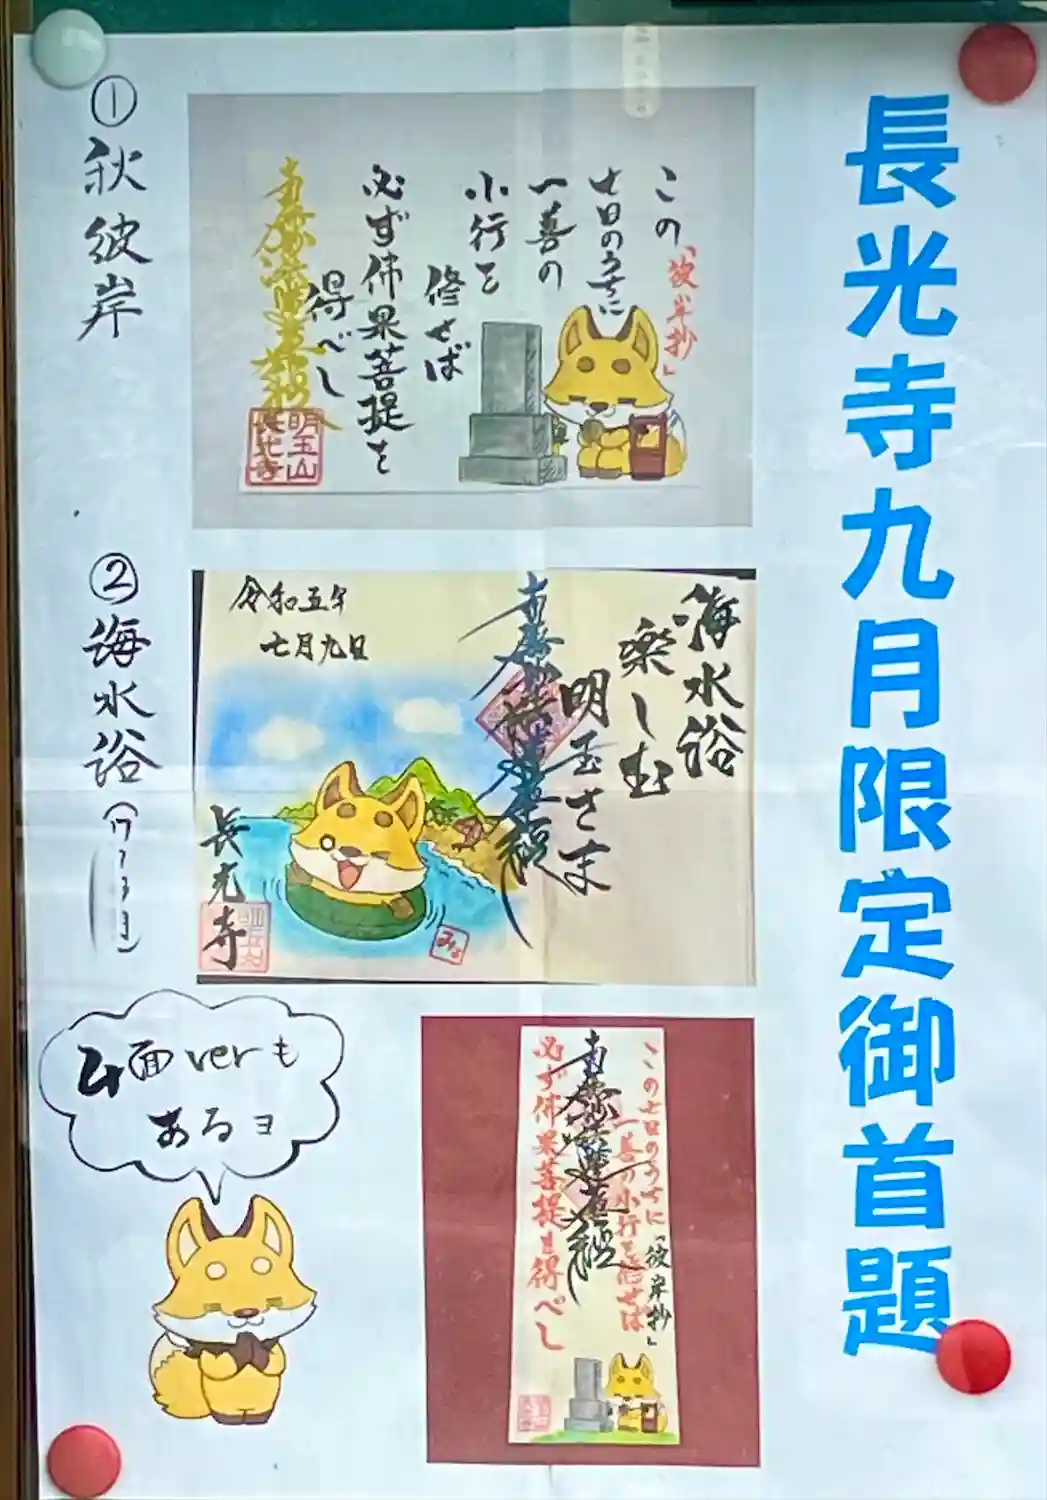 長光寺九月限定御首題
①秋彼岸
この
七日のうちに
一善の
小行を
修せば
必ず佛果菩提を
得べし
「彼岸抄」
南無妙法蓮華経
明玉山
長光寺
②海水浴
海水浴
楽しむ
明玉さま
南無妙法蓮華経
令和五年
七月九日
長光寺
みな
4面verも
あるヨ
この七日のうちに
一善の小行を修せば
「彼岸抄」
南無妙法蓮華経
必ず佛果菩提を得べし